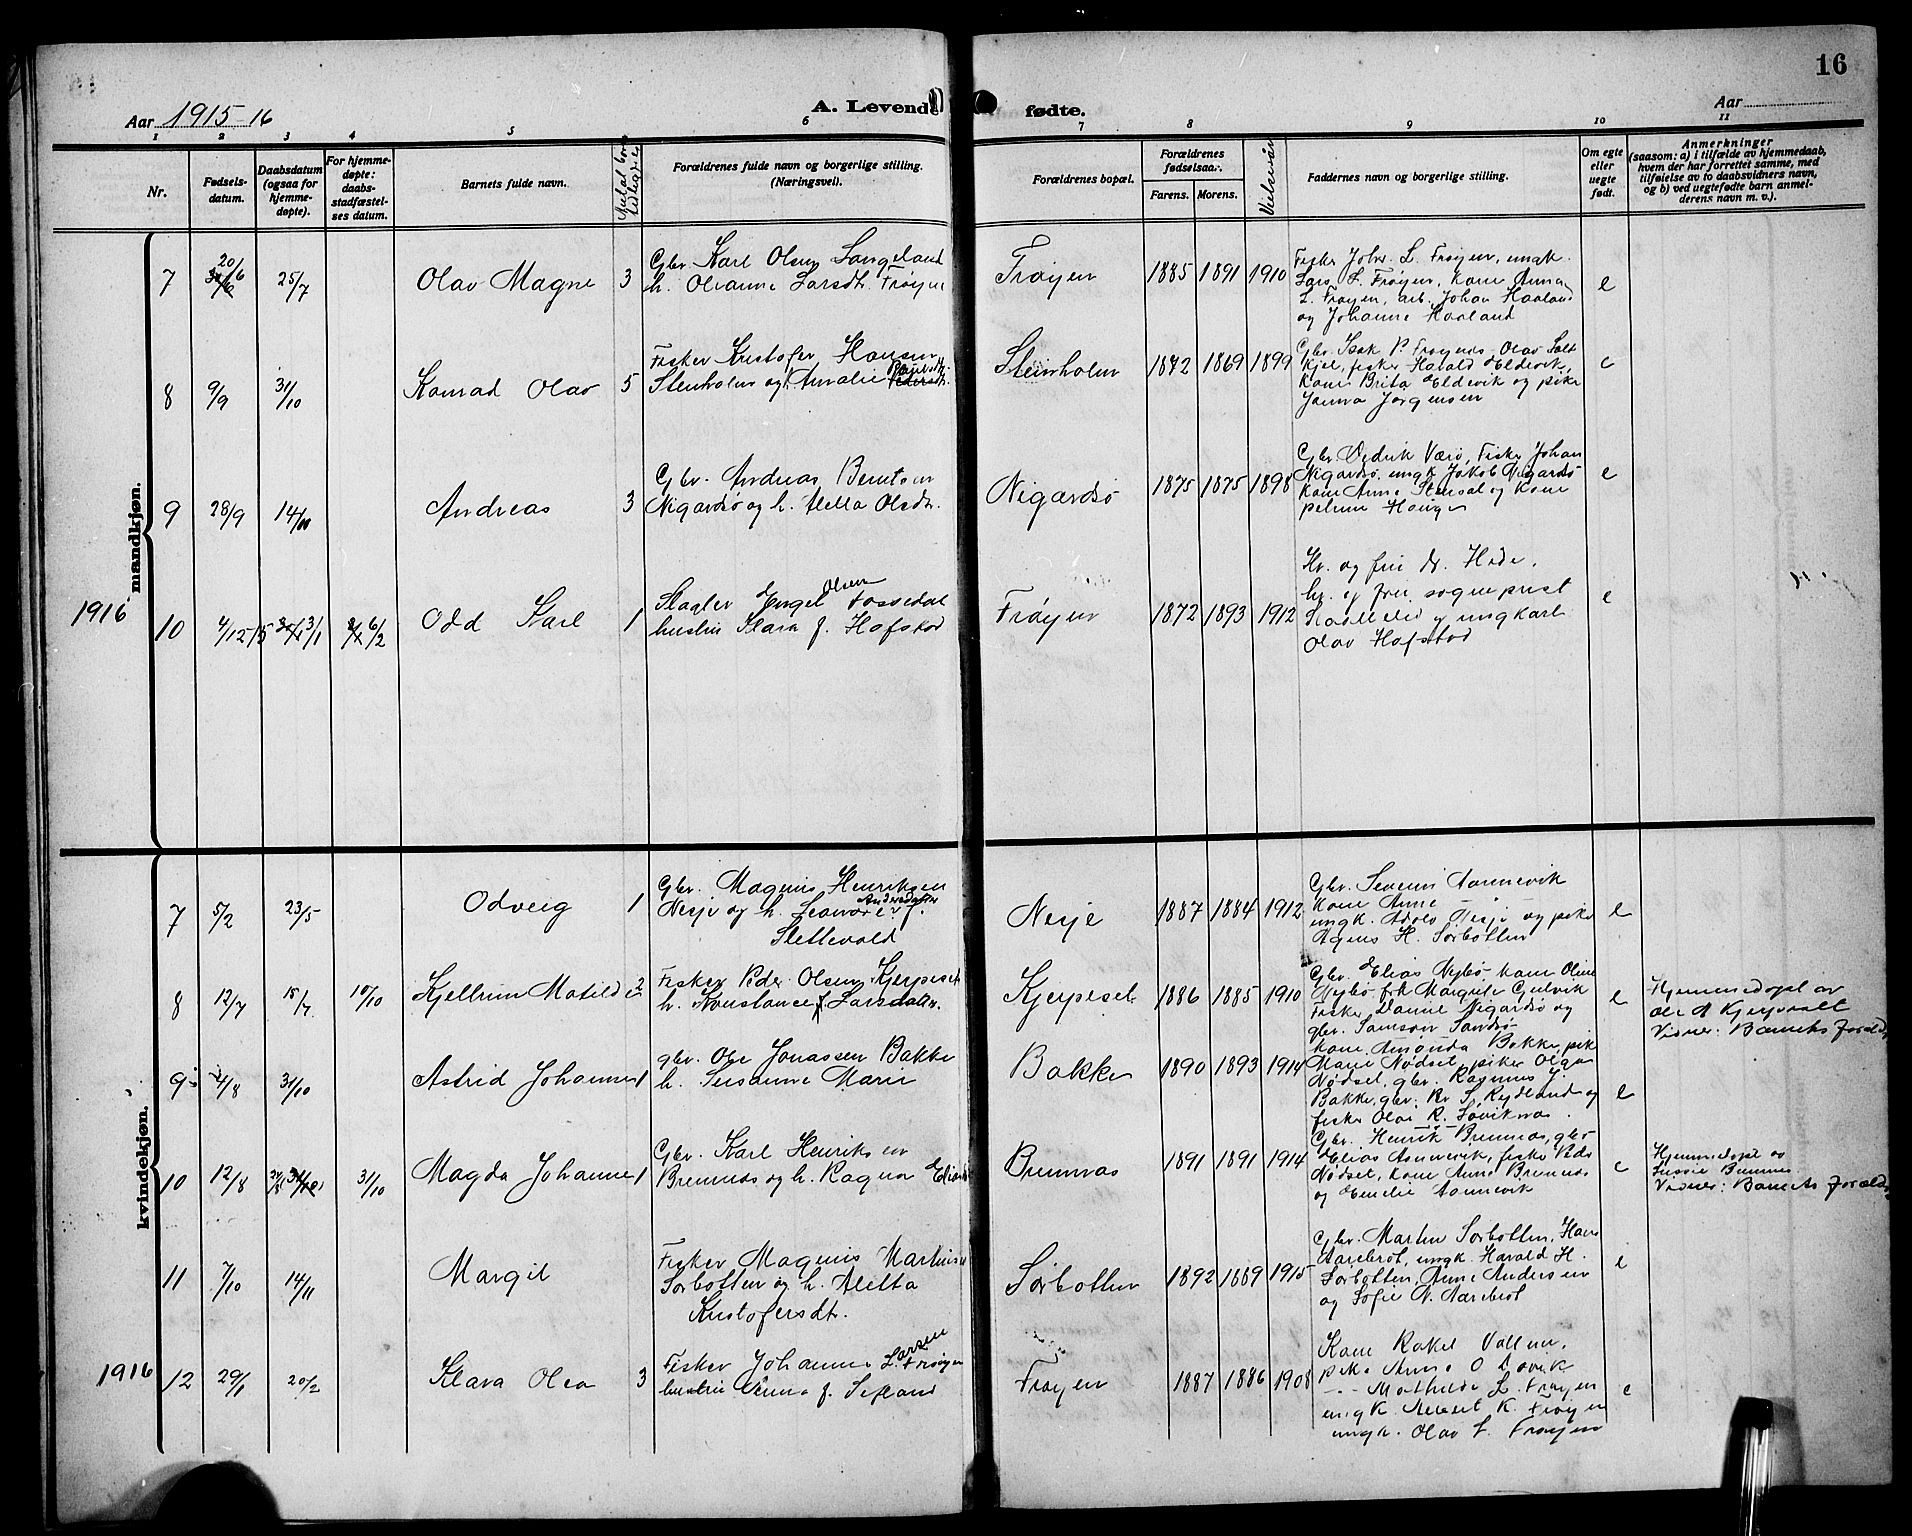 16
Aar 1915-16
A. Levende fødte.
Aar
1 2 3 4 5 6 7 8 9 10 11
Nr.
Fødsels-
datum.
Daabsdatum
(ogsaa for
hjemme-
døpte).
For hjemme-
døpte:
daabs-
stadfæstel-
ses datum.
Barnets fulde navn.
Forældrenes fulde navn og borgerlige stilling.
(Næringsvei).
Forældrenes bopæl.
Forældrenes
fødselsaar.
Farens. Morens.
Vielsesår
Faddernes navn og borgerlige stilling.
Om egte
eller
uegte
født.
Anmerkninger
(saasom: a) i tilfælde av hjemmedaab,
hvem der har forrettet samme, med
tilføielse av to daabsvidners navn,
og b) ved uegtefødte barn anmel-
derens navn m. v.).
mandkjøn.
7 20/6 25/7 Olav Magne 3
Gbr. Karl Olsen Langeland
h. Oleanne Larsdt. Frøyen
Frøyen 1885 1891 1910
Fisker Johs. L. Frøyen, ungk.
Lars L. Frøyen, kone Anna
L. Frøyen, arb. Johan Haaland
og Johanne Haaland
e
8 9/9 31/10 Konrad Olav 5
Fisker Kristofer Hansen
Stenholm og Amalie
Stenholm 1872 1869 1899
Gbr. Isak P. Frøynes, Olav Salt
kjel, fisker Harald Eldevik,
kone Brita Eldevik og pike
Janna Jørgensen
e
9 28/9 14/11 Andreas 3
Gbr. Andreas Berntsen
Nigardsø og h. Aletta Olsdt.
Nigardsø 1875 1875 1898
Gbr. Didrik Værø, Fisker Johan
Nigardsø, ungk. Jakob Nigardsø
kone Anne Stensal og kone
Petrine Hauge
e
1916
10 4/12 15 3/1 6/2 Odd Karl 1
Slagter Engel Olsen Fossedal
hustru Klara f. Hofstad
Frøyen 1872 1893 1912
Hr. og fru dr. Hede,
hr. og fru sogneprest
og ungkarl
Olav Hofstad
e
kvindekjøn.
7 5/2 23/5 Odveig 1
Gbr. Magnus Henriksen
Nesje og h. Leonore Andersdatter f.
Slettevold
Nesje 1887 1884 1912
Gbr. Severin Aannevik
kone Anne — " —
ungk. Adolv Nesje og pike
Agnes H. Sørbotten
e
8 12/7 15/7 10/10 Kjellrun Matilde 2
Fisker Peder Olsen Kjerpeset
h. Konstance Larsdatter.
Kjerpeset 1886 1885 1910
Gbr. Elias Nybø kone Oline
Nybø frk Margrete Gulvik
Fisker Daniel Nigardsø og
gbr. Samson Sandsø
e
Hjemmedøpt av
Ole A Kjerpeset
Vidner: Barnets foreldre
9 4/8 31/10 Astrid Johanne 1
gbr. Ole Jonassen Bakke
h. Susanne Marie
Bakke 1890 1893 1914
kone Amanda Bakke, pike
Marie Nødset, pike Olga
Nødset, gbr. Rasmus J.
Bakke, gbr. Kr S. Rydland og
fisker Olai R. Løviknes.
e
10 12/8 31/10 Magda Johanne 1
Gbr. Karl Henriksen
Bremnes og h. Ragna
Bremnes 1891 1891 1914
Gbr. Henrik Bremnes, gbr
Elias Aannevik, fisker Peder
Nødset, kone Anne Bremnes
og Emelie Aannevik
e
Hjemmedøpt av
Bremnes
Vidner: Barnets foreldre
11 7/10 14/11 Margit
Fisker Magnus Martinsen
Sørbotten og h. Aletta
Kristofersdt.
Sørbotten 1892 1889 1915
Gbr. Martin Sørbotten, Hans
Aarebrot, ungk. Harald H.
Sørbotten, Anne Andersen
og Sofie N. Aarebrot
e
1916
12 29/1 20/2 Klara Olea 3
Fisker Johannes Larsen Frøyen
hustru Anna f. Sefland
Frøyen 1887 1886 1908
Kone Rakel Vollen,
pike Anne O Løvik
— " — Mathilde L. Frøyen
ungk. K. Frøyen
ungk. Olav L. Frøyen
e